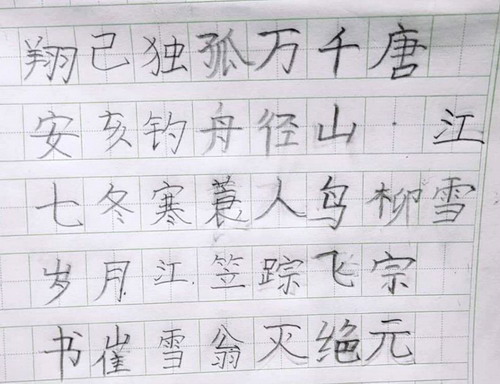 江雪
唐·柳宗元
千山鸟飞绝
万径人踪灭
孤舟蓑笠翁
独钓寒江雪
己亥冬月崔
翔安七岁书